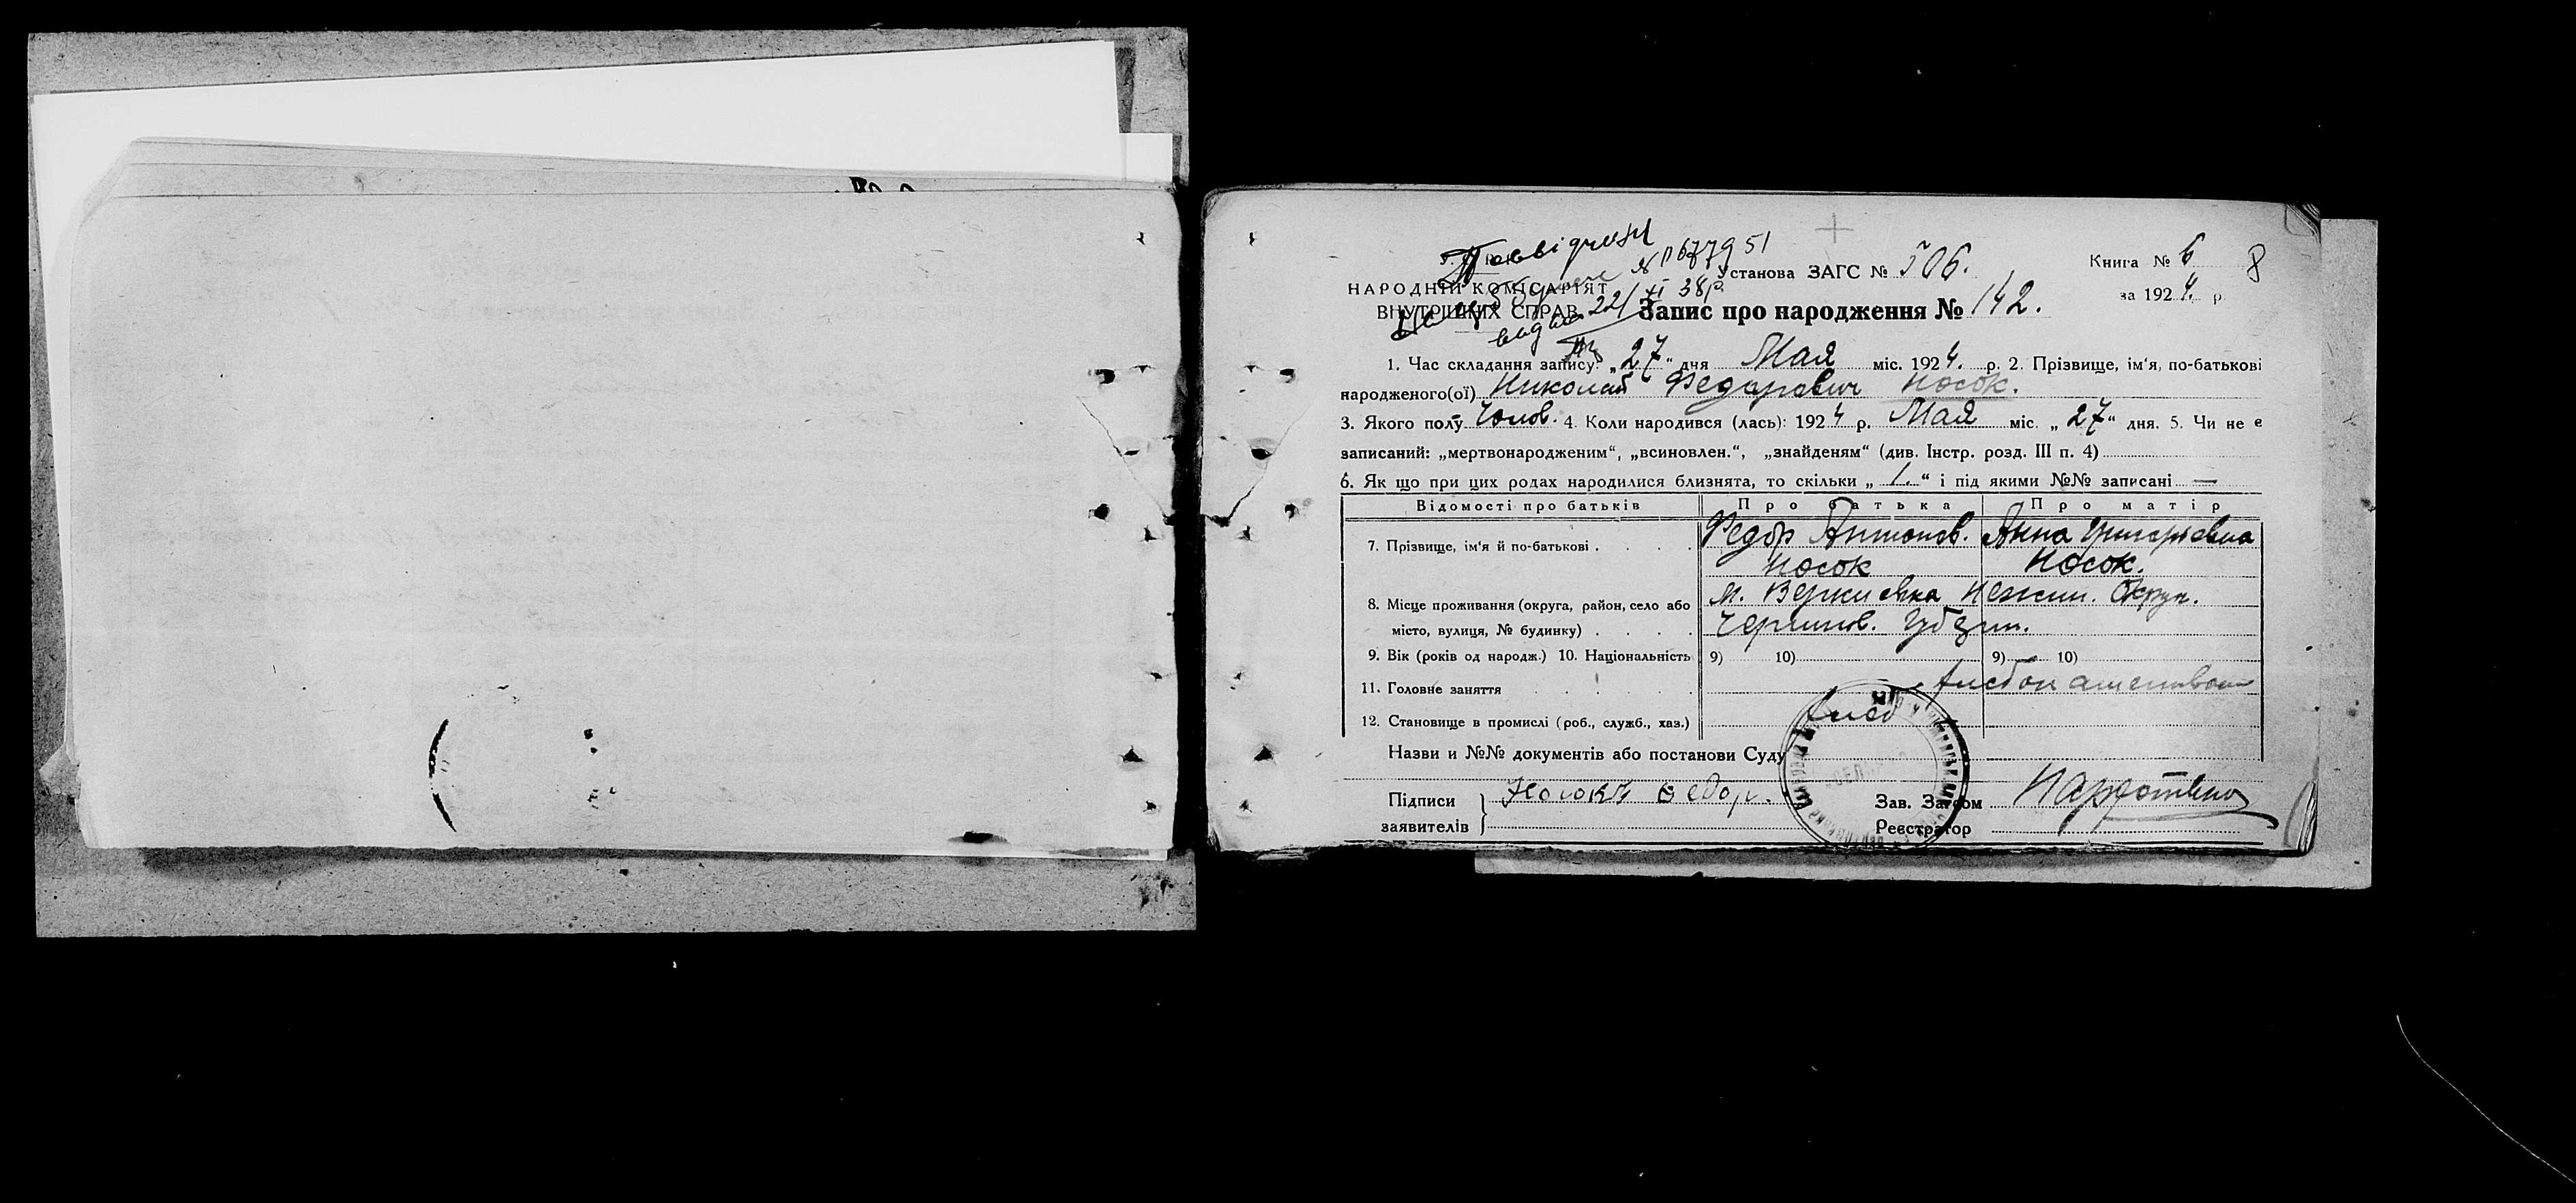 № П 677951
Установа ЗАГС № 506.
Книга № 6
8
НАРОДНІЙ КОМІСАРІЯТ
ВНУТРІШНІХ СПРАВ
22/XI 38 р.
за 1924 р.
Запис про народження № 142.
1. Час складання запису: „27“ дня Мая міс. 1924 р. 2. Прізвище, ім'я, по-батькові
народженого(ої) Николай Федорович Носок.
3. Якого полу Чолов. 4. Коли народився (лась): 1924 р. Мая міс. „27“ дня. 5. Чи не є
записаний: „мертвонародженим“, „всиновлен.“, „знайденям“ (див. Інстр. розд. III п. 4)
6. Як що при цих родах народилися близнята, то скільки „1.“ і під якими №№ записані —
Відомості про батьків Про батька Про матір
7. Прізвище, ім'я й по-батькові . . . . Федор Антонов. Анна Григорьевна
Носок Носок.
8. Місце проживання (округа, район, село або М. Веркиевка Нежин. Округ.
місто, вулиця, № будинку) . . . . Чернигов. Губерн.
9. Вік (років од народж.) 10. Національність 9) 10) 9) 10)
11. Головне заняття . . . . . .
12. Становище в промислі (роб., служб., хаз.)
Назви и №№ документів або постанови Суду
Підписи
заявителів
Зав. Загсом
Реєстратор